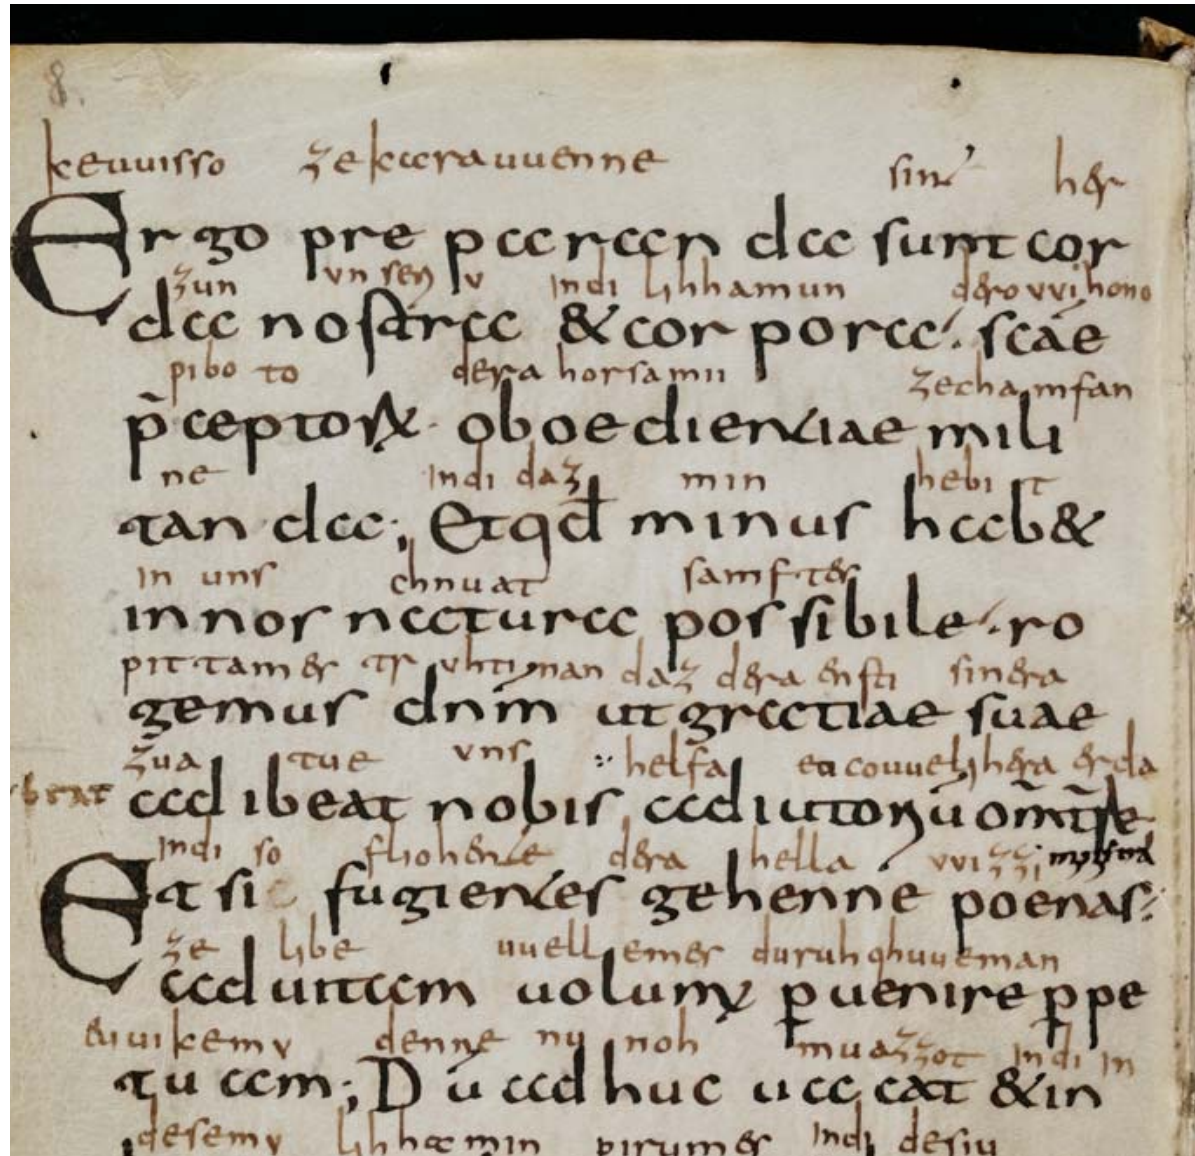 8.
keuuisso zekarauuenne sint her
Ergo preparan da sunt cor
zun unseru indi lihhamun dero vvihono
da nostra & corpora. scae
piboto dera horsamii zechamfan
p̄ceptorũ oboedientiae mili
ne indi daz min hebi t
tan da; Et qđ minus hab&
in uns chnuat samfter
in nos natura possibile. ro
pittamer tr uhtinan daz dera ensti sinera
gemus dnm ut gratiae suae
zua tue uns helfa
btat ad ibeat nobis adiutoriū
indi so fliohente dera hella vvizzi
Et si fugientes gehenne poenas
ze libe uuellemer duruhqhuueman
ad uitam uolumus puenire ppe
euuikemv denne nu noh muazzot indi in
tu am; Dū adhuc uacat & in
desemv lihhamin pirumes indi desiu